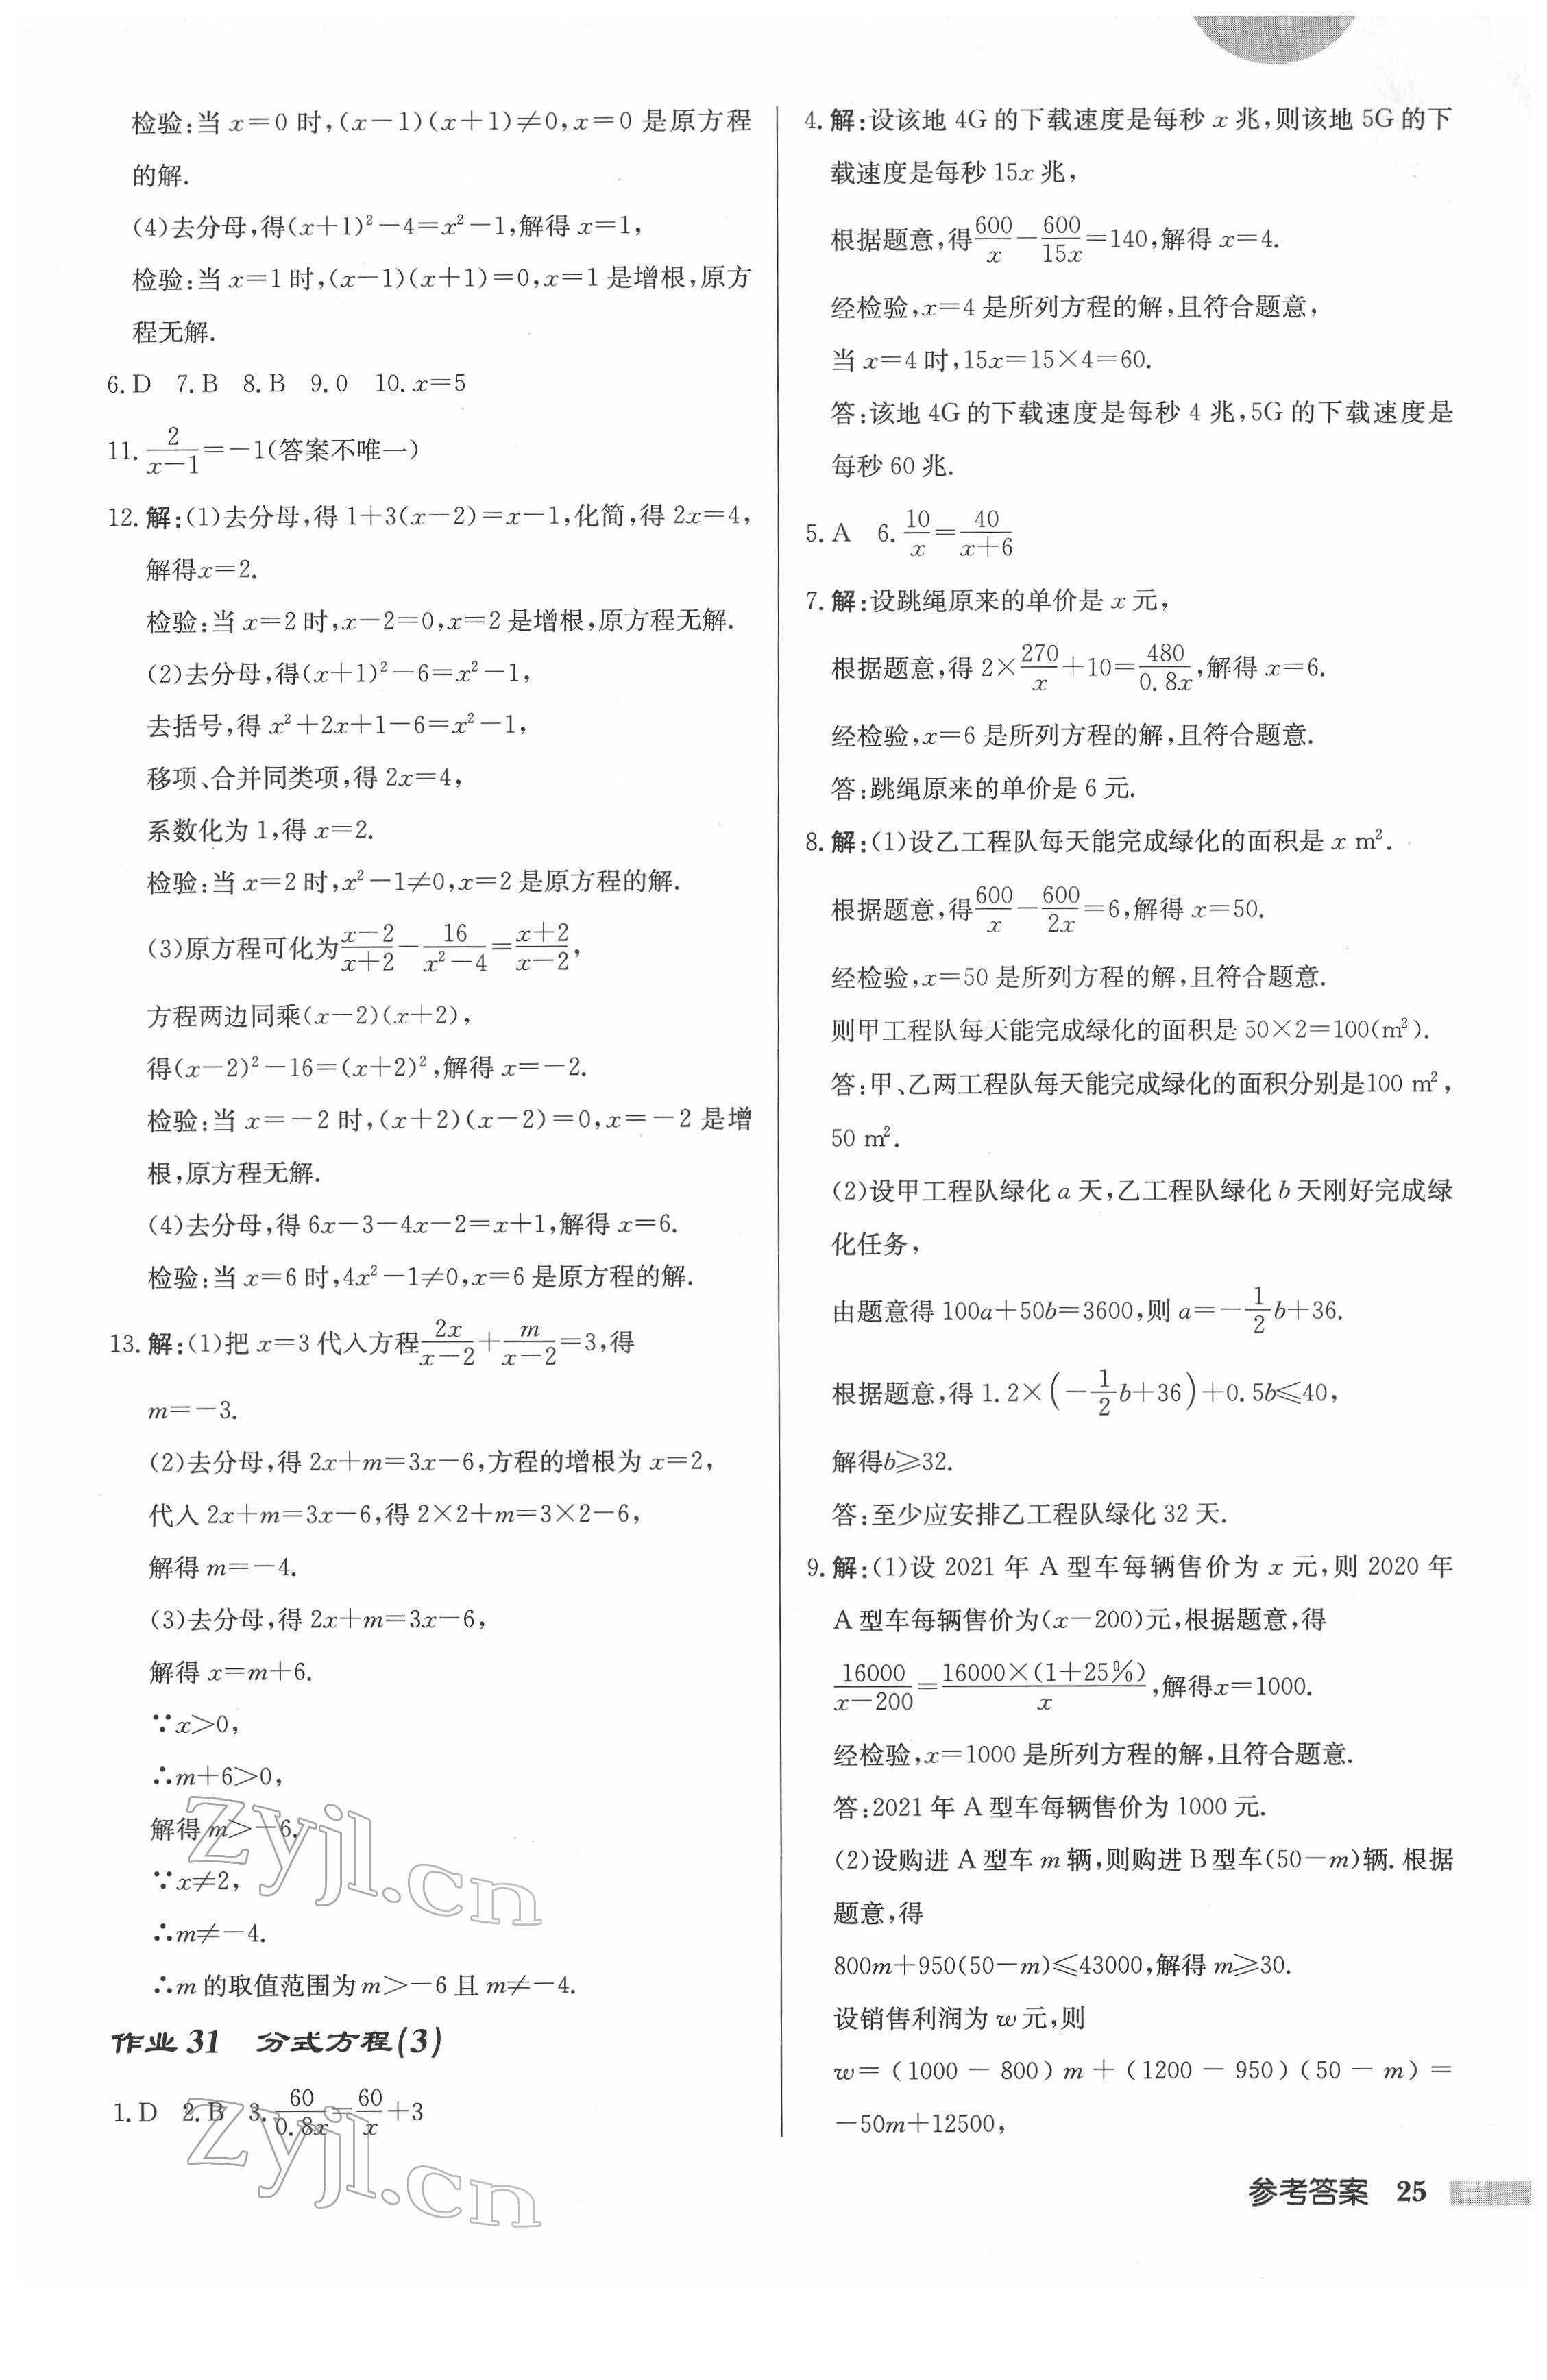 检验:当 x=0 时,(x-1)(x+1)≠0,x=0 是原方程
的解.
(4)去分母,得(x+1)²-4=x²-1,解得 x=1,
检验:当 x=1 时,(x-1)(x+1)=0,x=1 是增根,原方
程无解.
6.D 7.B 8.B 9.0 10.x=5
11. 2/(x-1)=-1(答案不唯一)
12.解:(1)去分母,得 1+3(x-2)=x-1,化简,得 2x=4,
解得x=2.
检验:当 x=2 时,x-2=0,x=2 是增根,原方程无解.
(2)去分母,得(x+1)²-6=x²-1,
去括号,得 x²+2x+1-6=x²-1,
移项、合并同类项,得 2x=4,
系数化为 1,得 x=2.
检验:当 x=2 时,x²-1≠0,x=2 是原方程的解.
(3)原方程可化为(x-2)/(x+2)-16/(x²-4)=(x+2)/(x-2),
方程两边同乘(x-2)(x+2),
得(x-2)²-16=(x+2)²,解得 x=-2.
检验:当 x=-2 时,(x+2)(x-2)=0,x=-2 是增
根,原方程无解.
(4)去分母,得 6x-3-4x-2=x+1,解得 x=6.
检验:当 x=6 时,4x²-1≠0,x=6 是原方程的解.
13.解:(1)把 x=3 代入方程2x/(x-2)+m/(x-2)=3,得
m=-3.
(2)去分母,得 2x+m=3x-6,方程的增根为 x=2,
代入 2x+m=3x-6,得 2×2+m=3×2-6,
解得 m=-4.
(3)去分母,得 2x+m=3x-6,
解得 x=m+6.
∵x>0,
∴m+6>0,
解得 m>-6.
∵x≠2,
∴m≠-4.
∴m 的取值范围为 m>-6 且 m≠-4.
作业 31 分式方程(3)
1.D 2.B 3. 60/0.8x=60/x+3
4.解:设该地 4G 的下载速度是每秒 x 兆,则该地 5G 的下
载速度是每秒 15x 兆,
根据题意,得600/x-600/15x=140,解得 x=4.
经检验,x=4 是所列方程的解,且符合题意,
当 x=4 时,15x=15×4=60.
答:该地 4G 的下载速度是每秒 4 兆,5G 的下载速度是
每秒 60 兆.
5.A 6. 10/x=40/(x+6)
7.解:设跳绳原来的单价是 x 元,
根据题意,得 2×270/x+10=480/0.8x,解得 x=6.
经检验,x=6 是所列方程的解,且符合题意.
答:跳绳原来的单价是 6 元.
8.解:(1)设乙工程队每天能完成绿化的面积是 x m².
根据题意,得600/x-600/2x=6,解得 x=50.
经检验,x=50 是所列方程的解,且符合题意.
则甲工程队每天能完成绿化的面积是 50×2=100(m²).
答:甲、乙两工程队每天能完成绿化的面积分别是100 m²,
50 m².
(2)设甲工程队绿化 a 天,乙工程队绿化 b 天刚好完成绿
化任务,
由题意得 100a+50b=3600,则 a=-1/2b+36.
根据题意,得 1.2×(-1/2b+36)+0.5b≤40,
解得b≥32.
答:至少应安排乙工程队绿化 32 天.
9.解:(1)设 2021 年 A 型车每辆售价为 x 元,则 2020 年
A 型车每辆售价为(x-200)元,根据题意,得
16000/(x-200)=16000×(1+25%)/x,解得x=1000.
经检验,x=1000 是所列方程的解,且符合题意.
答:2021 年 A 型车每辆售价为 1000 元.
(2)设购进 A 型车 m 辆,则购进 B 型车(50-m)辆.根据
题意,得
800m+950(50-m)≤43000,解得 m≥30.
设销售利润为 w 元,则
w=(1000-800)m+(1200-950)(50-m)=
-50m+12500,
参考答案 25
zyjl.cn
zyjl.cn